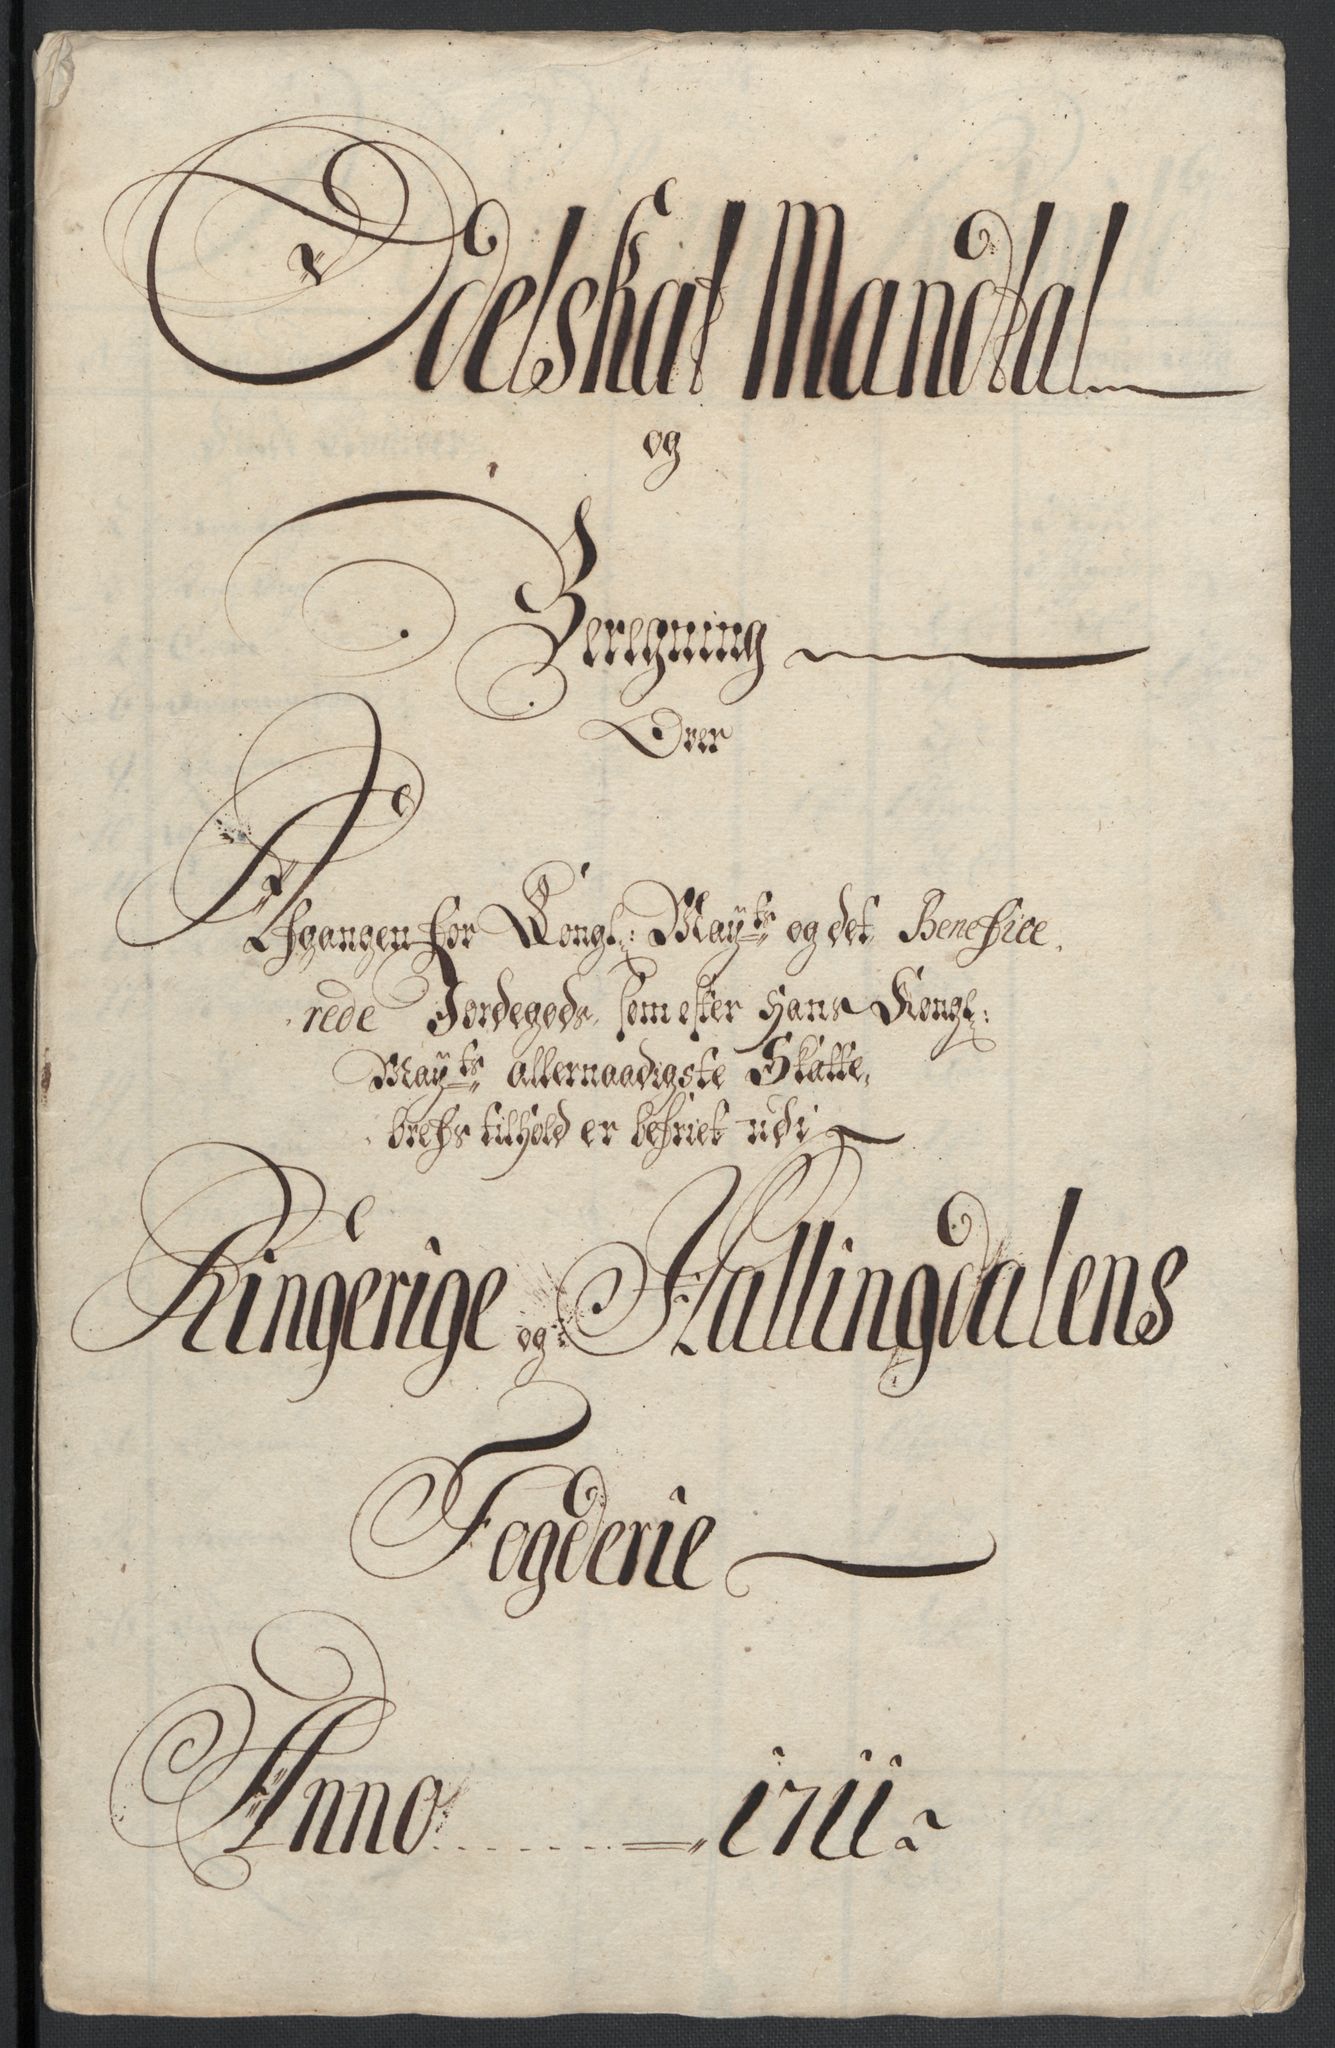 Odelskat Mandtal
og
Beregning
Over
Afgangen for Kongl: Mayts og det Benefice
rede Jordegods, som efter Hans Kongl:
Mayts allernaadigste Skatte,
brefs tilhold er befriet udi
Ringerige og Hallingdalens
Fogderie
Anno 1711